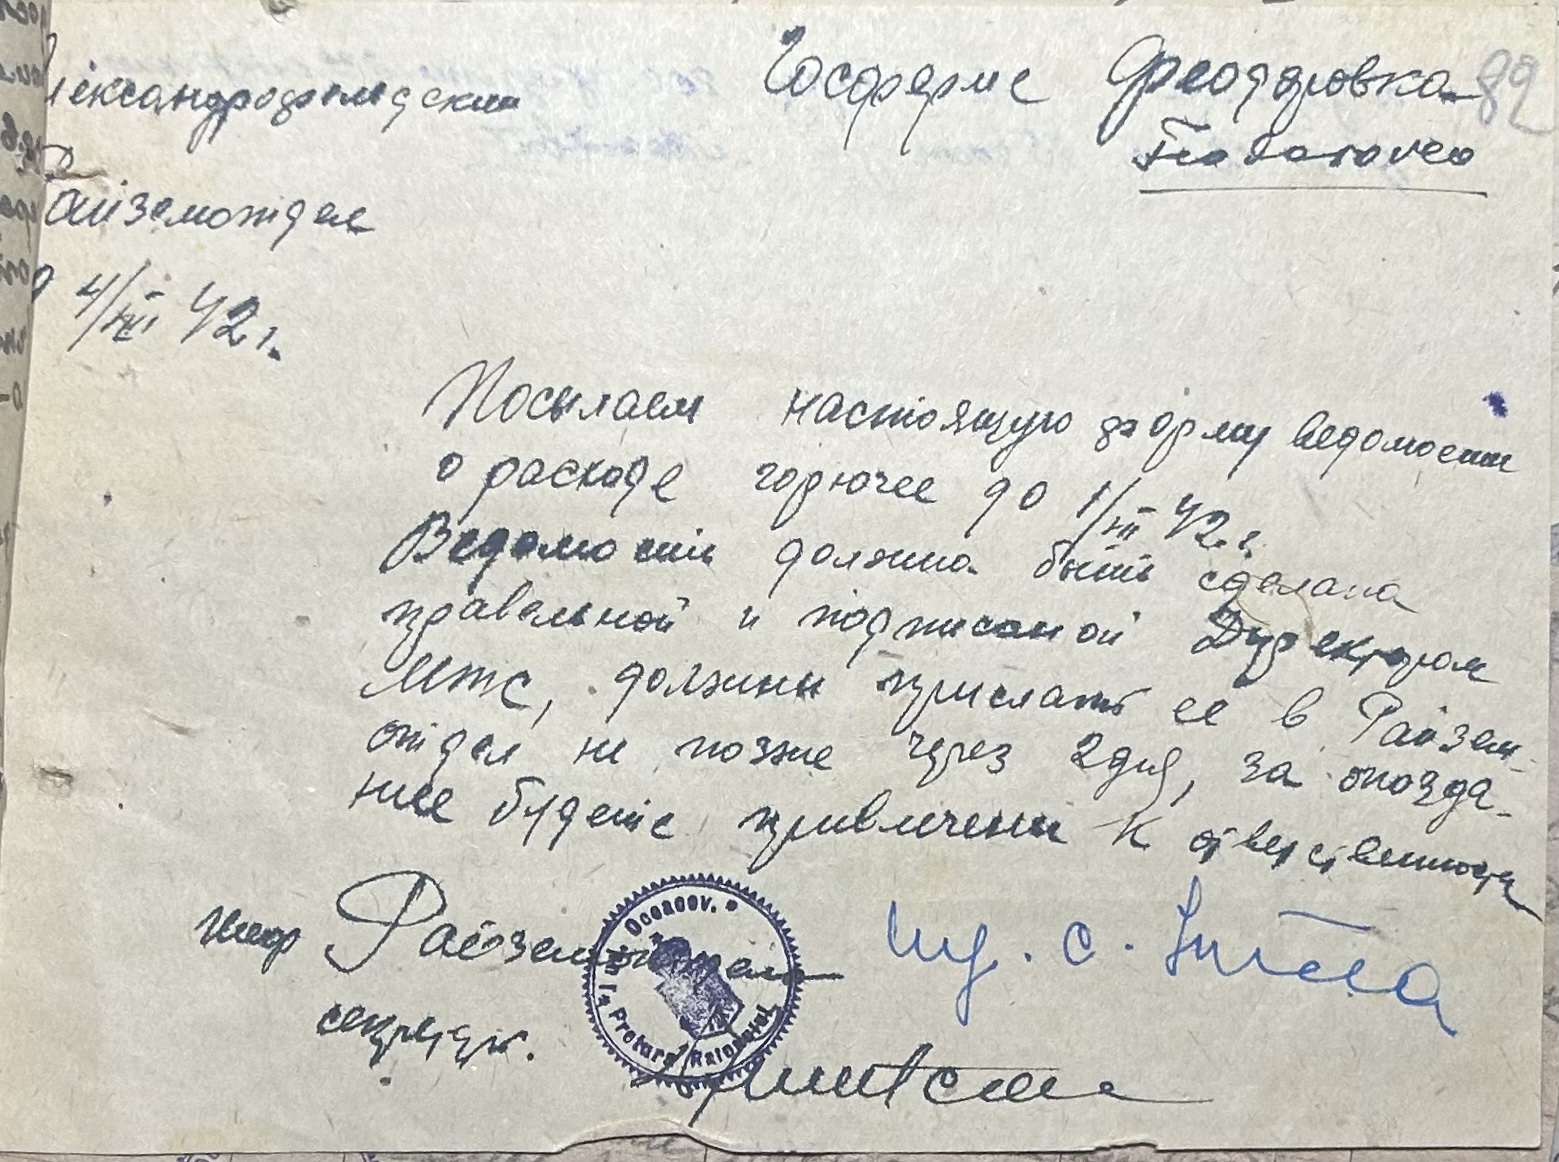 Александрофельдский
Райземотдел
4/XII 42 г.
Госферме Феодоровка
89
Teodorovca
Посылаем настоящую форму ведомости
о расходе горючее до 1/XII 42 г.
Ведомость должна быть сделана
правельной и подписаной Директором
МТС, должны прислать ее в Райзем-
отдел не позже через 2 дня, за опозда-
ние будете привлечены к ответственности
Райземотдела Ing. C.
секрет.
Ocoacov.
Pretura Raionului